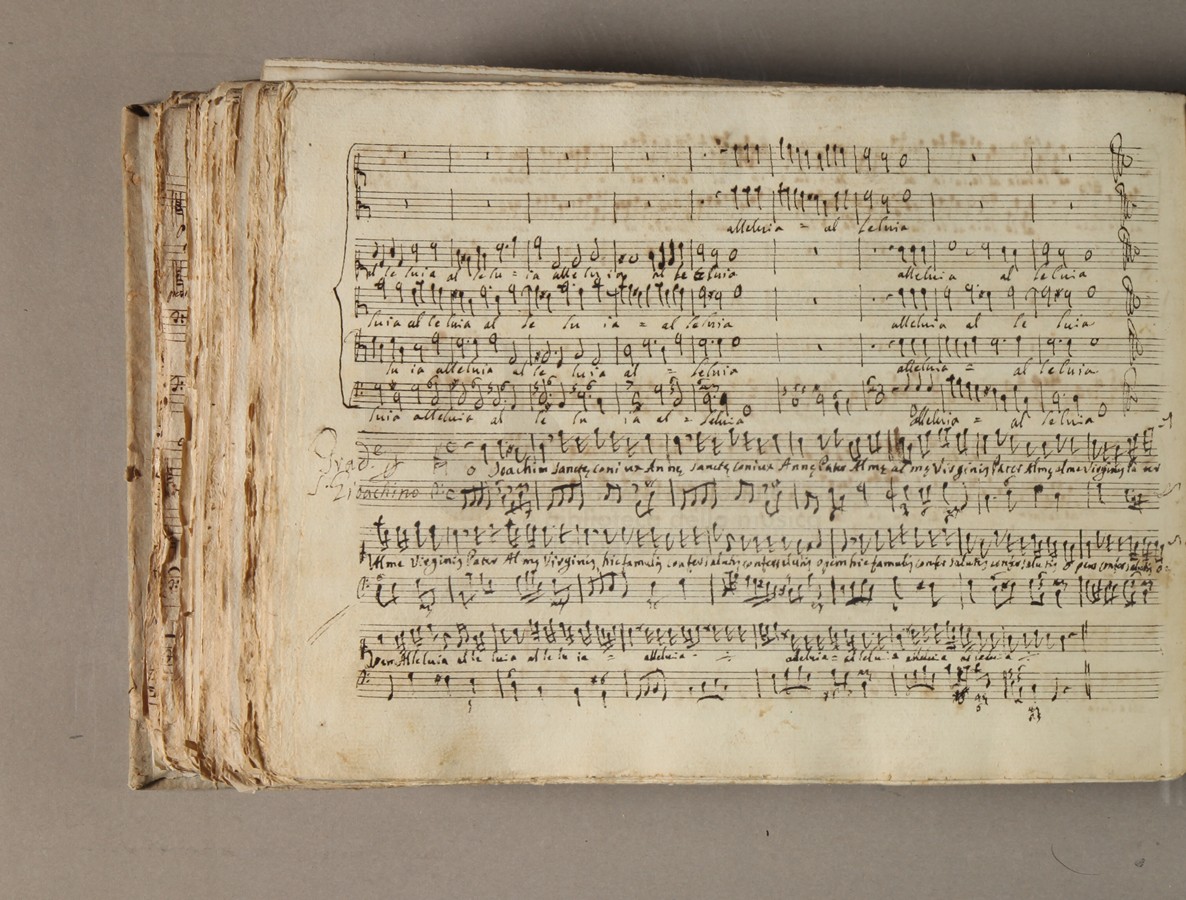 alleluia = al leluia
al le luia al lelu = ia alleluia al leluia alleluia al leluia
luia al leluia al le lu ia = al leluia alleluia al le luia
lu ia alleluia al le luia al = leluia alleluia = al leluia
luia alleluia al le lu ia al = leluia alleluia = al leluia
Grad. p
S. Gioachino
o Joachim sanctę coniux Annę sanctę coniux Annę Pater Almę al mę Virginis Pater Almę almę Virginis
Almę Virginis Pater Almę Virginis hic famulis confer salutis confer salutis opem hic famulis confer salutis confer salutis o pem confer salutis o =
pem Alleluia al le luia al le lu ia = alleluia alleluia = al lelu ia alleluia al leluia